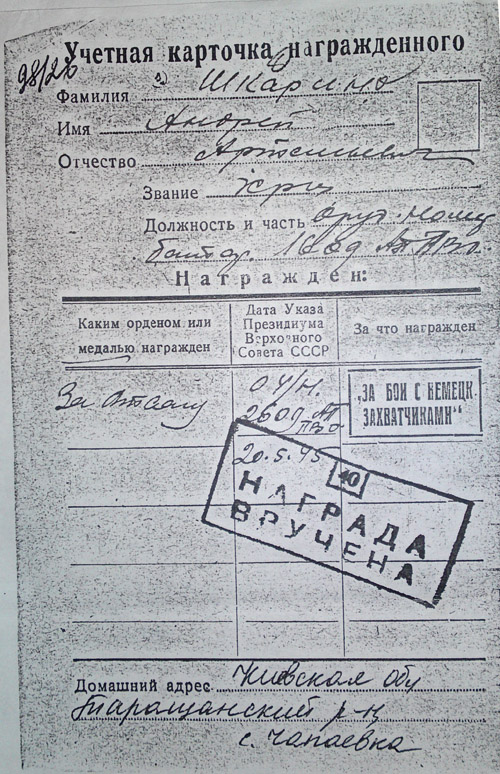 98/26
Учетная карточка награжденного
Фамилия Шкарино
Имя Андрей
Отчество Артемьевич
Звание
Должность и часть оруд. номер
батар. АП ПВО.
Награжден:
Каким орденом или медалью награжден
Дата Указа Президиума Верховного Совета СССР
За что награжден
За Отвагу
04/Н.
2609 АП
ПВО
20.5.45
„ЗА БОИ С НЕМЕЦК.
ЗАХВАТЧИКАМИ“
40
НАГРАДА
ВРУЧЕНА
Домашний адрес Киевская обл
Таращанский р-н
с. Чапаевка